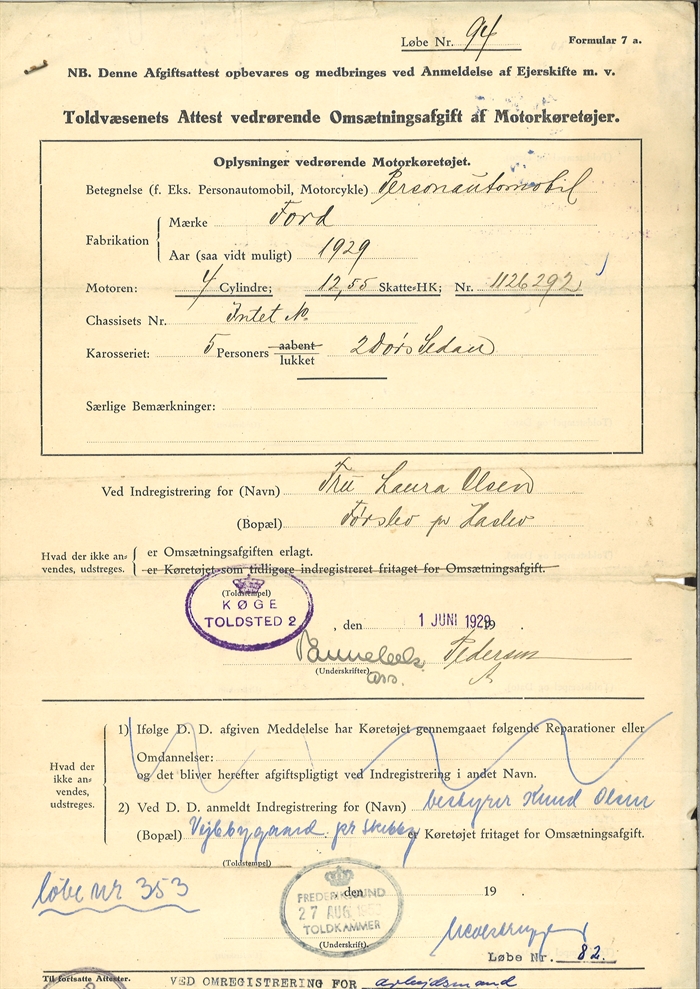 Løbe Nr. 94 Formular 7 a.
NB. Denne Afgiftsattest opbevares og medbringes ved Anmeldelse af Ejerskifte m. v.
Toldvæsenets Attest vedrørende Omsætningsafgift af Motorkøretøjer.
Oplysninger vedrørende Motorkøretøjet.
Betegnelse (f. Eks. Personautomobil, Motorcykle) Personautomobil
Fabrikation
Mærke Ford
Aar (saa vidt muligt) 1929
Motoren: 4 Cylindre; 12,55 Skatte-HK; Nr. 1126292
Chassisets Nr. Intet No
Karosseriet: 5 Personers aabent 2 Dørs Sedan
lukket
Særlige Bemærkninger:
Ved Indregistrering for (Navn) Fru Laura Olsen
(Bopæl) Førslev pr Haslev
Hvad der ikke an-
vendes, udstreges.
er Omsætningsafgiften erlagt.
er Køretøjet som tidligere indregistreret fritaget for Omsætningsafgift.
(Toldstempel)
KØGE
TOLDSTED 2
, den 1 JUNI 1929 19
Pedersen
(Underskrifter)
ass.
Hvad der
ikke an-
vendes,
udstreges.
1) Ifølge D. D. afgiven Meddelelse har Køretøjet gennemgaaet følgende Reparationer eller
Omdannelser:
og det bliver herefter afgiftspligtigt ved Indregistrering i andet Navn.
2) Ved D. D. anmeldt Indregistrering for (Navn) bestyrer Knud Olsen
(Bopæl) Vejlebygaard pr Skibby er Køretøjet fritaget for Omsætningsafgift.
(Toldstempel)
løbe nr 353
FREDERIKSSUND
27 AUG
TOLDKAMMER
, den 19
(Underskrift)
Løbe Nr. 82.
Til fortsatte Attester.
VED OMREGISTRERING FOR arbejdsmand